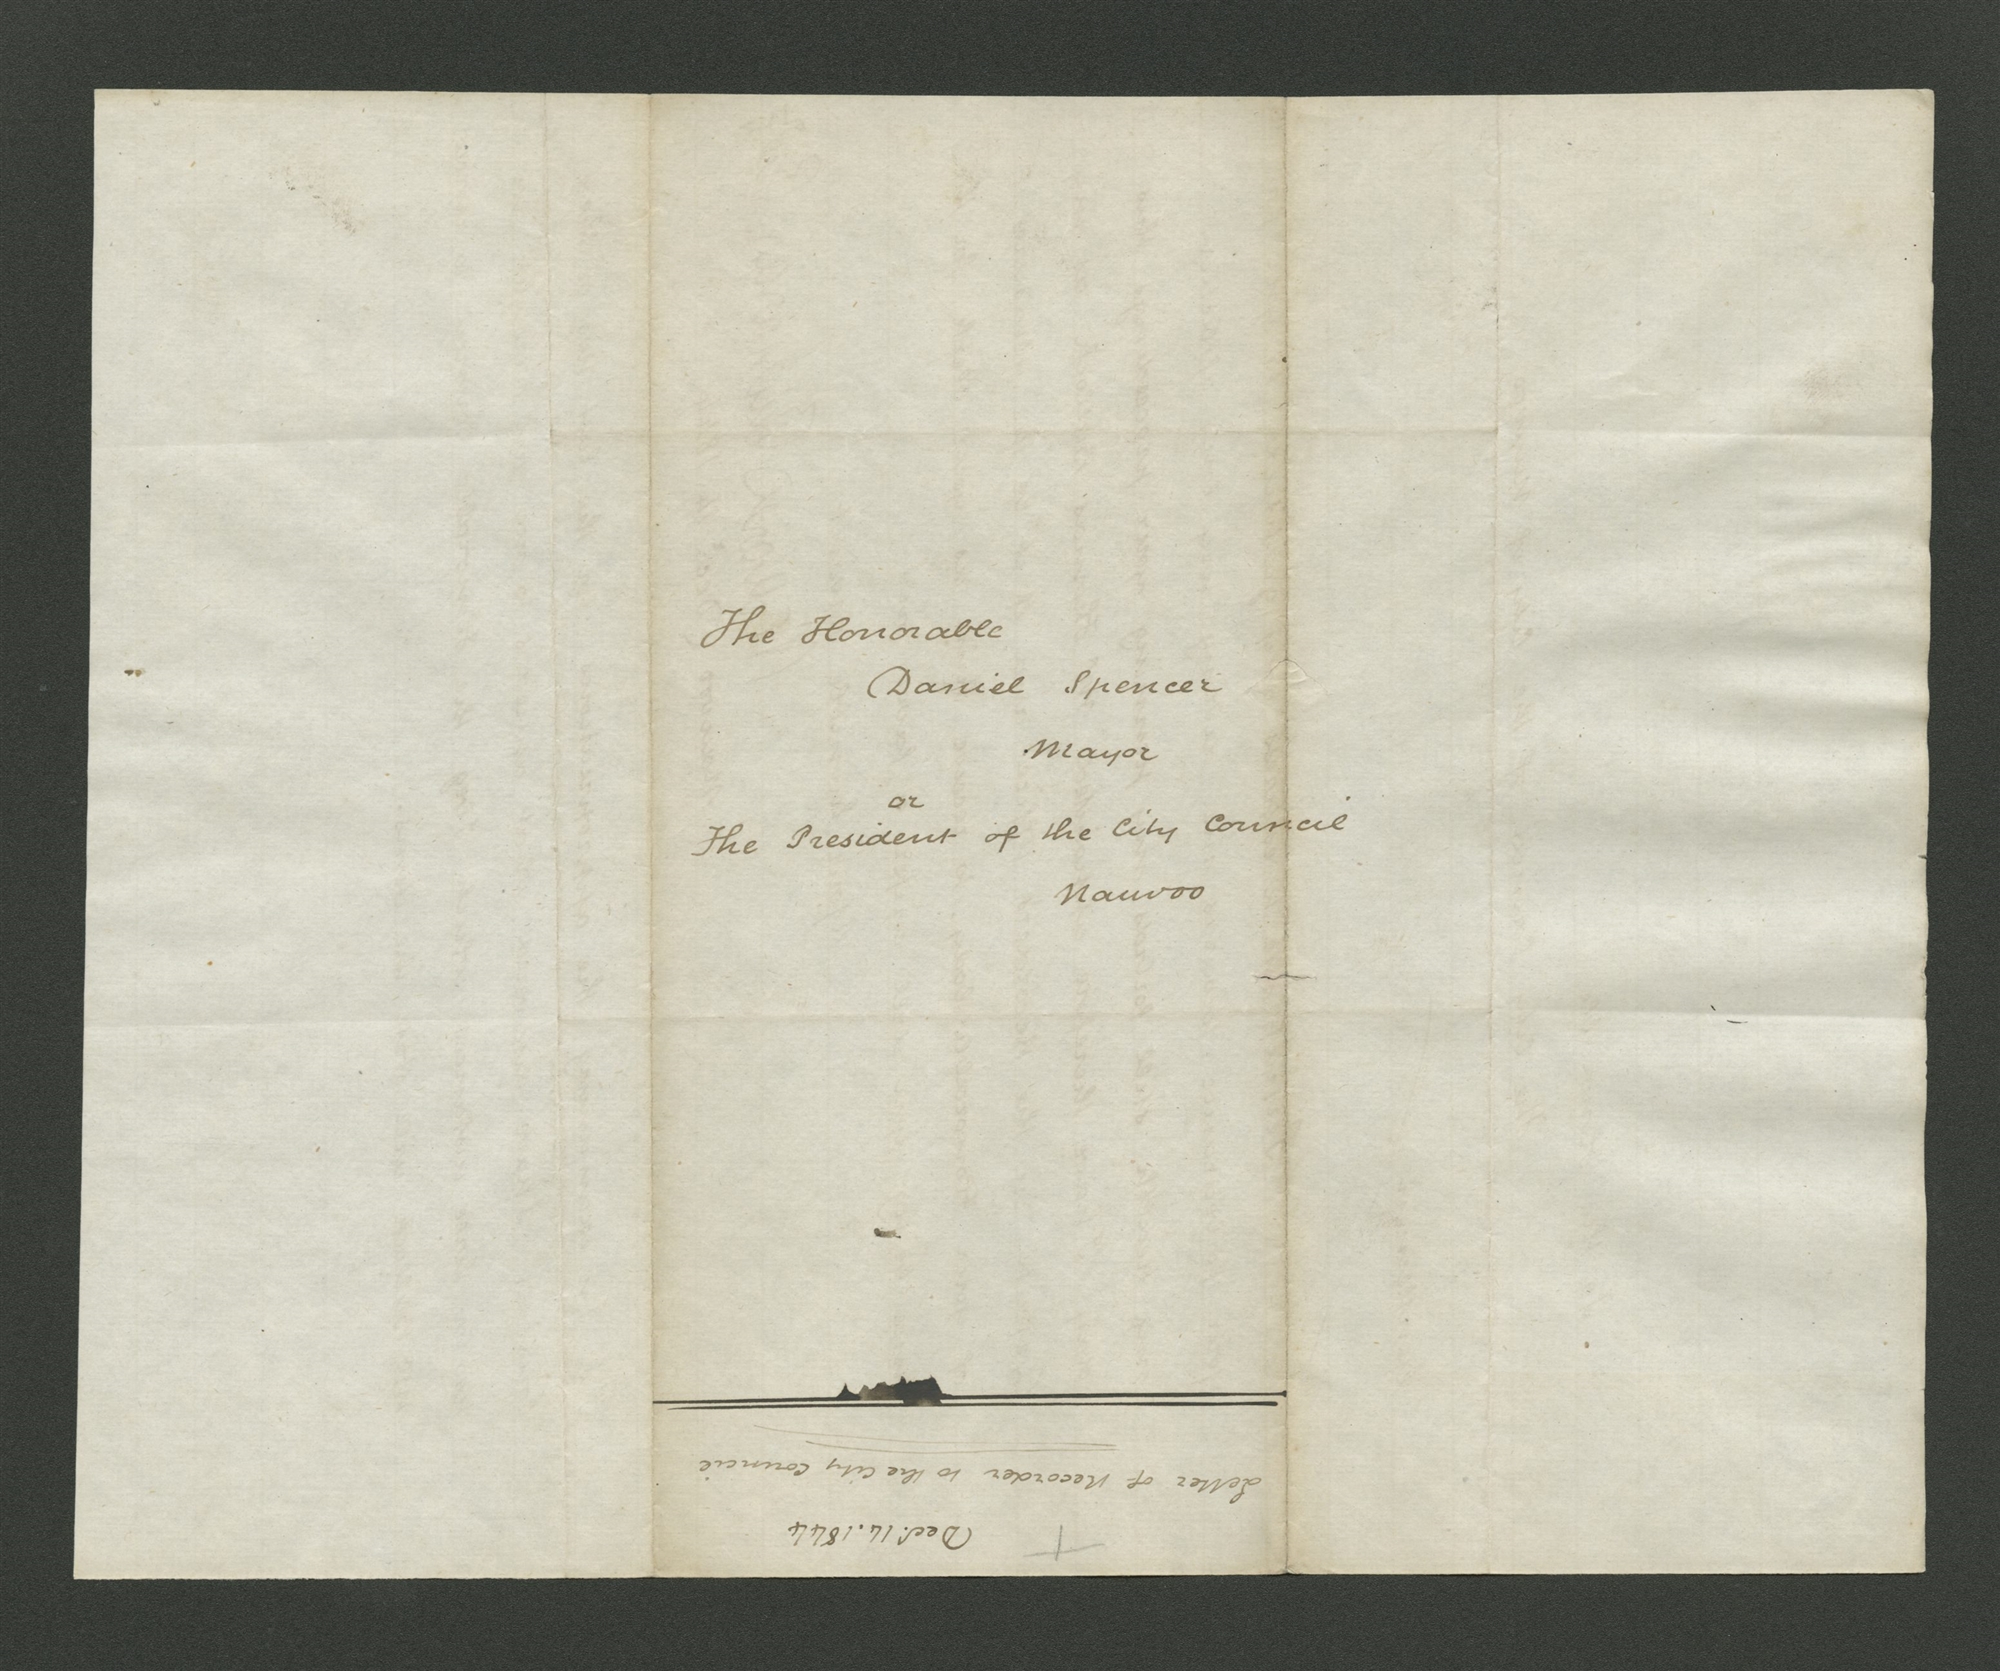 The Honorable
Daniel Spencer
Mayor
or
The President of the City Council
Nauvoo
Dec. 14. 1844
Letter of Recorder to the City Council